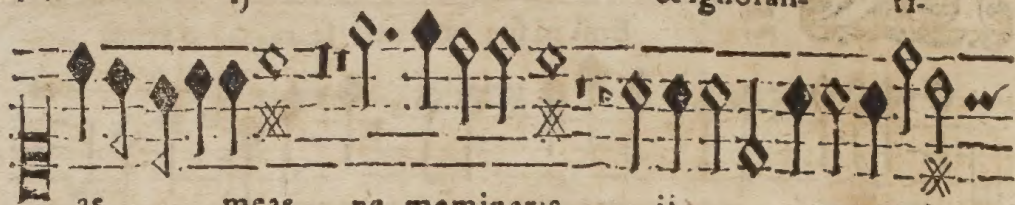 ij ignoran- ti-
as meas ne memineris ij